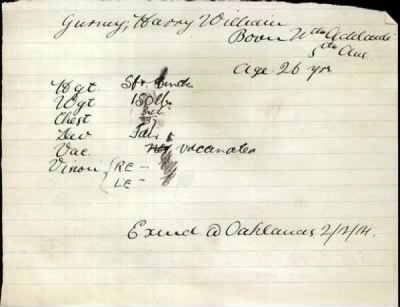 Gurney; Harry William
Born Nth Adelaide
Sth Aus
Age 26 yrs
Hgt 5ft
Wgt 150 lb.
Chest
Dev Fair
Vac vaccinated
Vision { RE -
LE -
Exmd @ Oaklands 2/12/14.